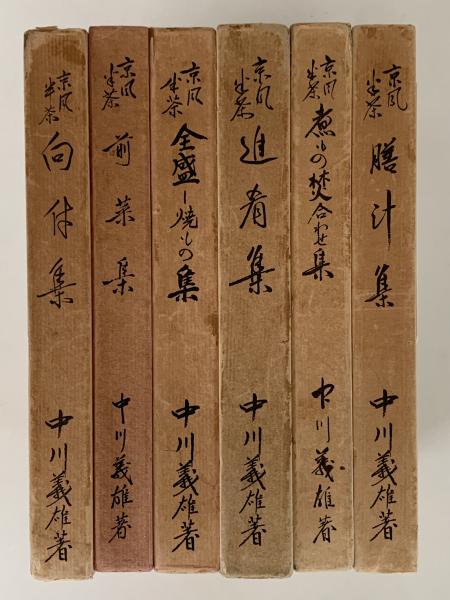 京風
半茶
膳汁集
中川義雄著
京風
半茶
煮もの焚合わせ集
中川義雄著
京風
半茶
進肴集
中川義雄著
京風
半茶
全盛-焼もの集
中川義雄著
京風
半茶
前菜集
中川義雄著
京風
半茶
向付集
中川義雄著